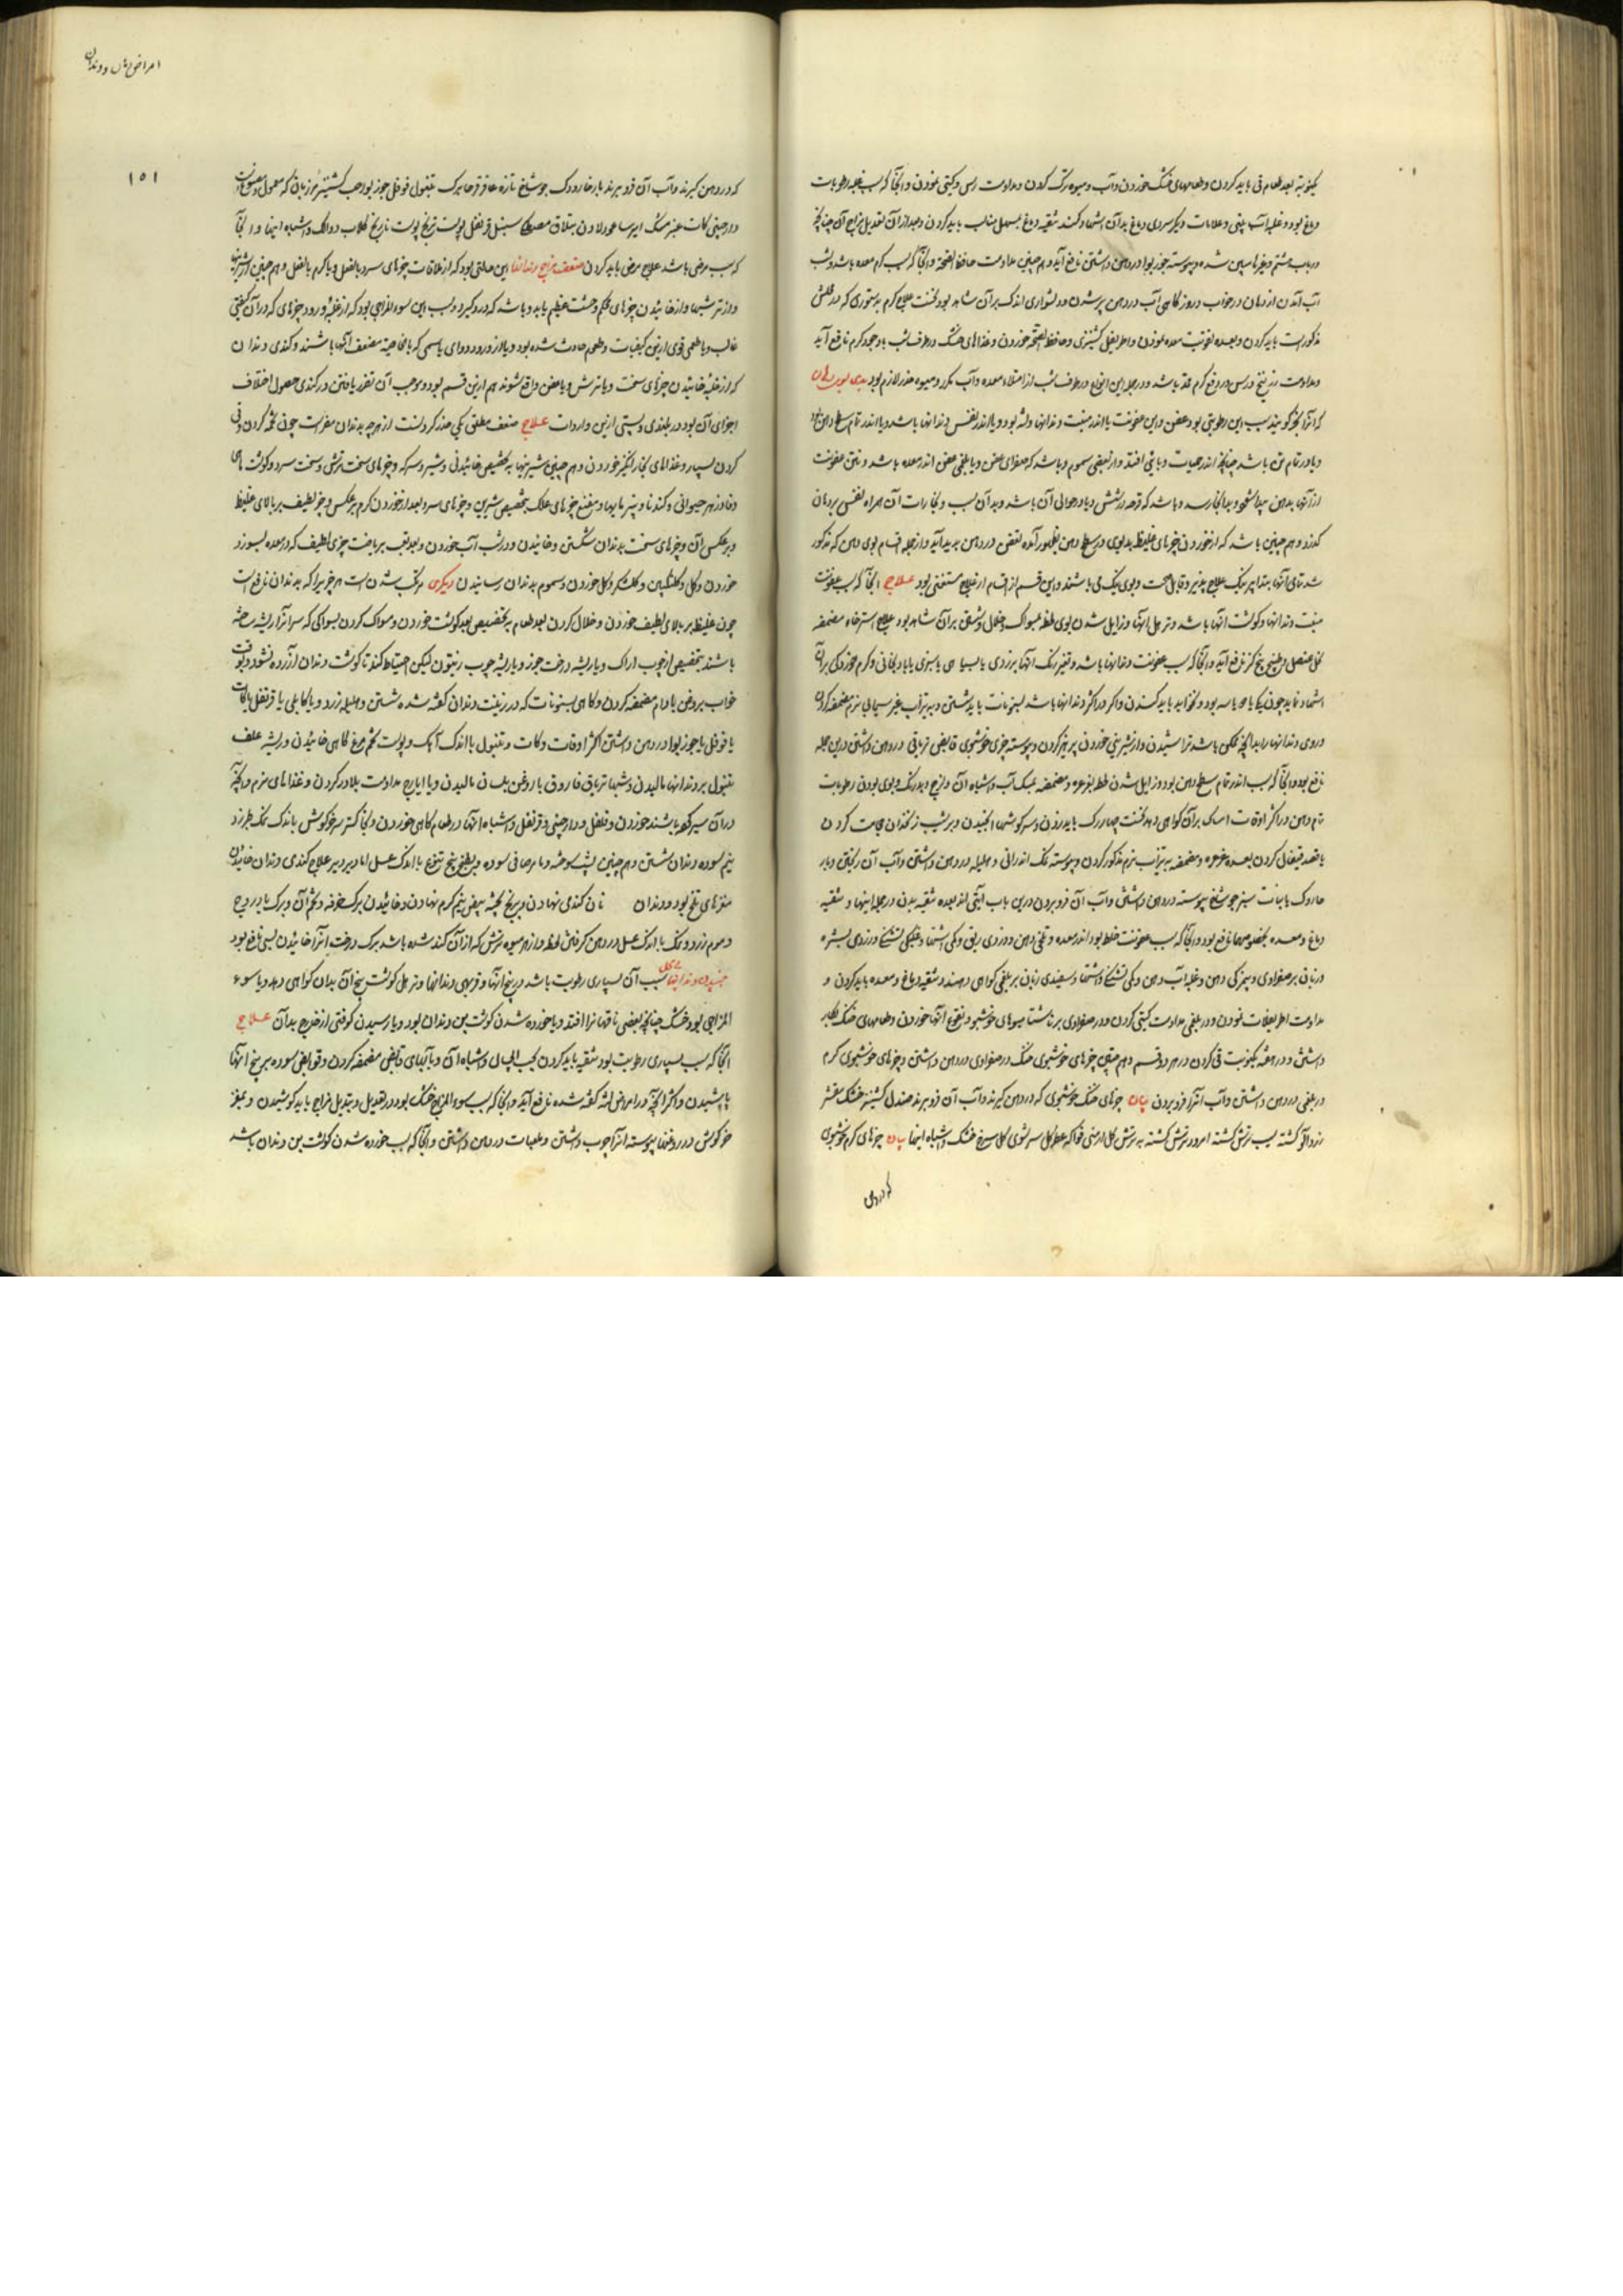 یکنوبه بعد طعام قی باید کردن و طعامهای خشک خوردن و آب و میوه ترک کردن و مداومت نمودن و آنجا که سبب غلبه رطوبات
دماغ بود و غلبه آب بینی و علامات دیگر سردی دماغ بدان اشهاد کند تنقیه دماغ بمسهل مناسب باید کردن و بعد از آن تعدیل مزاج آن چنانچه
در باب هشتم و غیره مبین شده و پیوسته جوز بوا در دهن داشتن نافع آید و هم چنین مداومت حافظ الصحة و آنجا که سبب کرم معده باشد و بشب
آب آمدن از دهان در خواب و روز گاهی آب در دهن پر شدن و دشواری اندک بر آن شاهد بود نخست علاج کرم بدستوری که در محلش
مذکور است باید کردن و بعده تقویت معده نمودن و اطریفل کشنیزی و حافظ الصحة خوردن و غذاهای خشک در طرف شب با وجود کرم نافع آید
و مداومت در دفع کرم باشد و در جمله این انواع در طرف شب از امتلاء معده و آب مکرر و میوه حذر لازم بود بدی بوی دهان
که آنرا بخر گویند سبب این رطوبتی بود عفن و این عفونت یا اندر منبت دندانها و لثه بود و یا اندر نفس دندانها باشد و یا اندر تمام سطح دهن بود
و یا در تمام تن باشد چنانچه اندر حمیات وبایی افتد و از بعضی سموم و باشد که صفرای عفن و یا بلغمی عفن اندر معده باشد و نتن عفونت
از آنها بدهن و بدانجا رسد و باشد که قرحه در شش و یا در حوالی آن باشد و بدان سبب و بخارات آن همراه نفس بر دهان
گذرد و هم چنین باشد که از خوردن چیزهای غلیظ بدبوی در سطح دهن بظهور آمده تعفن در دهن پدید آید و از جمله اقسام بوی دهن که مذکور
شد تمامی آنها بتدابیر نیک علاج پذیر و قابل صحت و بوی نیک می باشند و این قسم از اقسام از علاج مستغنی بود علاج آنجا که سبب عفونت
منبت دندانها و گوشت آنها باشد و ترهل آنها و زایل شدن بوی لحظه بمسواک و خلال و شستن بر آن شاهد بود علاج استرخاء مضمضه
خل عنصل و طبیخ نافع آید و آنجا که سبب عفونت دندانها باشد و تغیر رنگ آنها بزردی یا بسیاهی یا بسبزی یا بادنجانی و کرم خوردگی بر آن
اشهاد نماید چون یکی یا سه بود و بخواهد باید کندن و اگر در اکثر دندانها باشد بسنونات باید شستن و به تیزاب نرم مضمضه کردن
و روی دندانها را بدانچه ممکن باشد تراشیدن و از شیرینی خوردن پرهیز کردن و پیوسته چیزی خوشبوی قابض تریاقی در دهن داشتن درین جمله
نافع بود و آنجا که سبب اندر تمام سطح دهن بود و زایل شدن لحظه بغرغره و مضمضه بنمک آب و اشباه آن و لزج و بدرنگ و بوی بودن رطوبات
تمام دهن در اکثر اوقات امساک بر آن گواهی دهد نخست چهار رگ باید زدن و سر گوشها الخنیدن و بر شیب زنخدان حجامت کردن
یا فصد قیفال کردن بعده غرغره و مضمضه به تیزاب نرم مذکور کردن و پیوسته نمک اندرانی و هلیله در دهن داشتن و آب آن ریختن و بار
خاروک یا نبات سبز جوشاخ پیوسته در دهن داشتن و آب آن فرو بردن درین باب آیتی اند بعده تنقیه بدن در جمله اینها و تنقیه
دماغ و معده بخصوصها نافع بود و آنجا که سبب عفونت خلط بود اندر معده و تلخی دهن و زردی ریق و کمی اشتها و خشکی تشنگی و زردی بشره
و زبان بر صفراوی و بیمزگی دهن و غلبه آب دهن و کمی تشنگی و اشتها و سفیدی زبان بر بلغمی گواهی دهند و تنقیه دماغ و معده باید کردن و
مداومت اطریفلات نمودن و در بلغمی مداومت کردن و در صفراوی بر ناشتا میوهای خوشبو و نقوع آنها خوردن و طعامهای خشک بکار
داشتن و در هفته یکنوبت قی کردن در هر دو قسم و هم چنین چیزهای خوشبوی خنک در صفراوی در دهن داشتن و چیزهای خوشبوی گرم
در بلغمی در دهن داشتن و آب آنرا فرو بردن بیان چیزهای خنک خوشبوی که در دهن گیرند و آب آن فرو برند صندل کشنیز خشک مقشر
زردآلو کشته سیب ترش کشته امرود ترش کشته به ترش گل ارمنی فواکه عطر گل سرشوی گل سرخ خشک و اشباه اینها بیان چیزهای گرم خوشبوی
که در دهن
امراض دهان و دندان
۱۵۱
که در دهن گیرند و آب آن فرو برند بار خاروک جوشاخ تازه عاقرقرحا برگ تنبول فوفل جوز بوا حب کشنیز مرزبان که معمول
دارچینی کات عنبر مشک ایرسا عود لادن مصطکی سنبل قرنفل پوست ترنج پوست نارنج گلاب و اشباه اینها و آنجا
که سبب مرضی باشد علاج مرض باید کردن ضعف مزاج دندانها این حالتی بود که از ملاقات چیزهای سرد بالفعل و یا گرم بالفعل و هم چنین از شیرینیها
و از ترشیها و از خائیدن چیزهای محکم وحشت عظیم یابد و باشد که درد گیرد و سبب این سوء المزاجی بود که از غلبه ورود چیزهای که در آن کیفیتی
غالب و یا طعمی قوی ازین کیفیات و طعوم حادث شده بود و یا از ورود دوای یا سمی که بالخاصیة مضعف آنها باشند و کندی دندان
که از غلبه خائیدن چیزهای سخت و یا ترش و یا عفن واقع شوند هم ازین قسم بود و موجب آن تضرر یافتن در کندی حصول اختلاف
اجزای آن بود در بلندی و پستی ازین واردات علاج ضعف مطلق یکی حذر کردنست از هرچه بدندان مضرست چون تخمه کردن و قی
کردن بسیار و غذاهای بخارانگیز خوردن و هم چنین شیرینیها بتخصیص خائیدنی و شیر و سرکه و چیزهای سخت ترش و سخت سرد و گوشت ماهی
و فادزهر حیوانی و کندنا و پنیرمایها و مغز چیزهای علک بتخصیص شیرین و چیزهای سرد بعد از خوردن گرم و برعکس و چیز لطیف بر بالای غلیظ
و برعکس آن و چیزهای سخت بدندان شکستن و خائیدن و در شب آب خوردن و بعد تعب بریاضت چیزی لطیف که در معده بسوزد
خوردن و گل و گلنگبین و گلشکر و گل خوردن و سموم بدندان رسانیدن دیگری مرتکب شدنست هر چیزیرا که بدندان نافع است
چون غلیظ بر بالای لطیف خوردن و خلال کردن بعد طعام بتخصیص بعد گوشت خوردن و مسواک کردن بمسواکی که سر آنرا ریشه ساخته
باشند بتخصیص از چوب اراک و یا ریشه درخت جوز و یا ریشه چوب زیتون لیکن احتیاط کند تا گوشت دندان آزرده نشود و بوقت
خواب بروغن بادام مضمضه کردن و گاهی بسنونات که در زینت دندان گفته شده شستن و هلیله زرد و یا کابلی یا قرنفل یا کات
یا فوفل یا جوز بوا در دهن داشتن اکثر اوقات و کات و تنبول با اندک آهک و پوست تخم مرغ گاهی خائیدن و ریشه علف
تنبول بر دندانها مالیدن و شبها تریاق فاروق یا روغن بلسان مالیدن و یا ایارج مداومت بلادر کردن و غذاهای نرم و آنچه
در آن سیر باشند خوردن و فلفل و دارچینی و قرنفل و اشباه آنها در طعام گاهی خوردن و بخاکستر سر خرگوش با اندک نمک طبرزد
نیم سوده دندان شستن و هم چنین سوخته و مامرصافی سوده و بطبخ بیخ تنوع با اندک عسل اما دیر دیر علاج کندی دندان خائیدن
مغزهای تلخ بود و دندان نان کندی نهادن و برنج پخته بیض نیم گرم نهادن و خائیدن برگ خرفه و تخم آن و برگ بادروج
و موم زرد و نمک با اندک عسل در دهن گرفتن لحظه و از هر میوه ترش که از آن کند شده باشد برگ درخت آنرا خائیدن بسی نافع بود
جنبیدن دندانها سبب آن بسیاری رطوبت باشد در بیخ آنها و فربهی دندانها و ترهل گوشت بیخ آن بدان گواهی دهد و یا سوء
المزاجی بود خشک چنانچه بعضی ناقهانرا افتد و یا خورده شدن گوشت بن دندان بود و یا رسیدن کوفتی از خارج بدان علاج
آنجا که سبب بسیاری رطوبت بود تنقیه باید کردن و اشباه آن و بآبهای قابض مضمضه کردن و قوابض سوده بر بیخ آنها
پاشیدن و اکثر آنچه در امراض لثه گفته شده نافع آید و آنجا که سبب سوء المزاج خشک بود در تعدیل و تبدیل مزاج باید کوشیدن و بمغز
خرگوش در روغنها پیوسته آنرا چرب داشتن و لعابات در دهن داشتن و آنجا که سبب خورده شدن گوشت بن دندان باشد